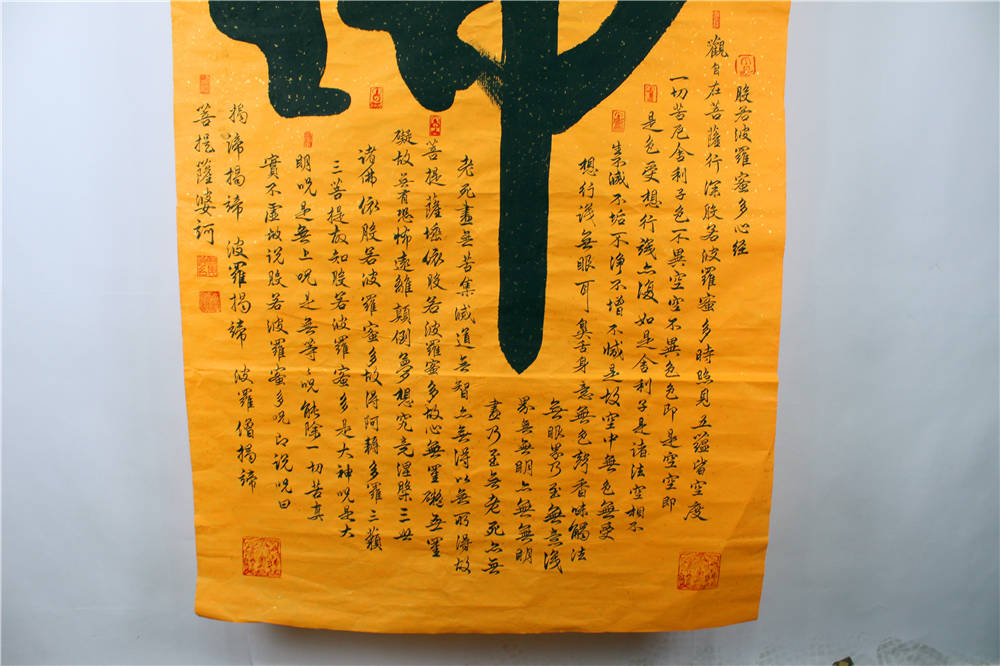 般若波羅蜜多心经
觀自在菩薩行深般若波羅蜜多時照見五蘊皆空度
一切苦厄舍利子色不異空空不異色色即是空空即
是色受想行識亦復如是舍利子是诸法空相不
生滅不垢不净不增不减是故空中無色無受
想行識無眼耳鼻舌身意無色聲香味觸法
無眼界乃至無意識
界無無明亦無無明
盡乃至无老死亦無
老死盡無苦集滅道無智亦無得以無所得故
菩提薩埵依般若波羅蜜多故心無罣礙無罣
礙故無有恐怖遠離顛倒夢想究竟涅槃三世
諸佛依般若波羅蜜多故得阿耨多羅三藐
三菩提故知般若波羅蜜多是大神呪是大
明呪是無上呪是無等〻呪能除一切苦真
實不虚故説般若波羅蜜多呪即説呪曰
揭諦揭諦 波羅揭諦 波羅僧揭諦
菩提薩婆訶